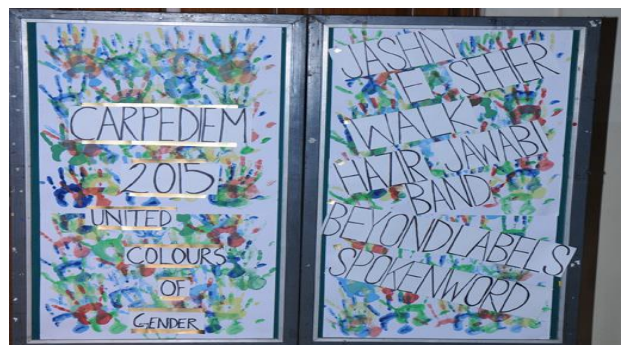 CARPEDIEM
2015
UNITED
COLOURS
OF
GENDER
JASHN
E SHHER
WALK
HAZIR JAWABI
BAND
BEYOND LABELS
SPOKENWORD